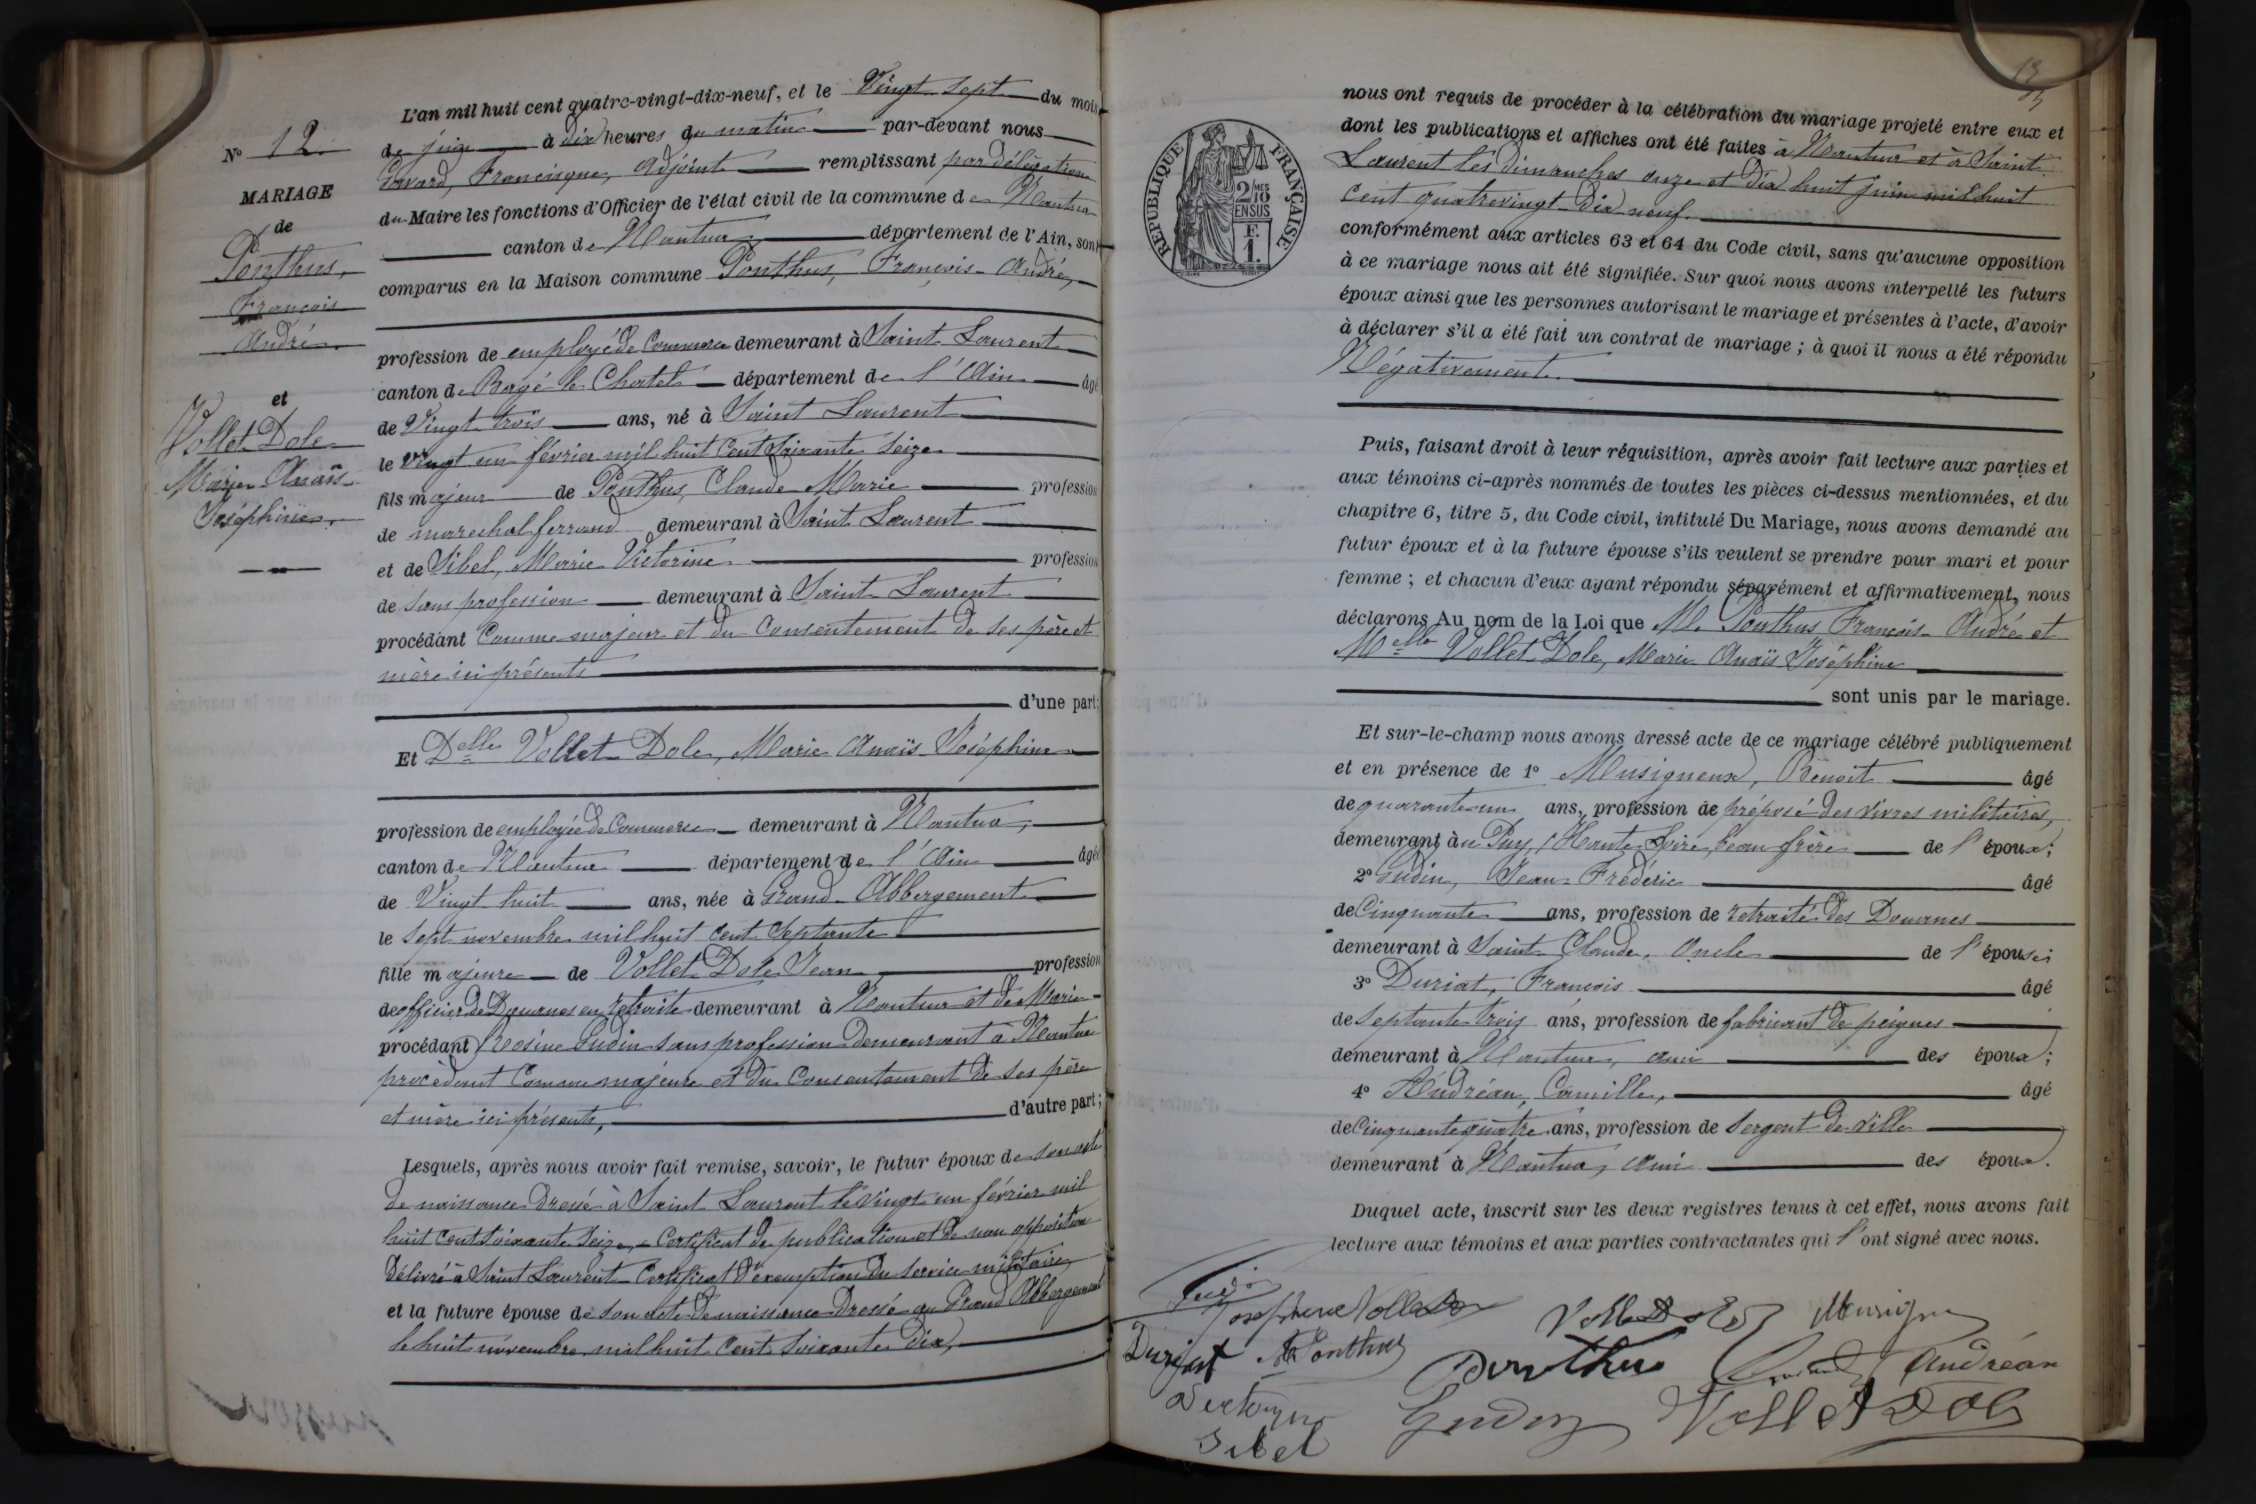 L'an mil huit cent quatre-vingt-dix-neuf, et le Vingt sept du mois
de juin à dix heures du matin par-devant nous
Govard, Francisque, Adjoint remplissant par délégation
du Maire les fonctions d'Officier de l'état civil de la commune de Nantua
canton de Nantua département de l'Ain, sont
comparus en la Maison commune Ponthus, François-André,
profession de employé de Commerce demeurant à Saint Laurent
canton de Bagé le Chatel département de l'Ain âgé
de Vingt trois ans, né à Saint Laurent
le vingt un février mil huit cent soixante seize
fils majeur de Ponthus, Claude Marie profession
de marechal ferrand demeurant à Saint Laurent
et de Sibel, Marie Victorine profession
de sans profession demeurant à Saint Laurent
procédant Comme majeur et du Consentement de ses père et
mère ici présents
d'une part;
Et Delle Vollet-Dole, Marie Anaïs Joséphine
profession de employée de Commerce demeurant à Nantua,
canton de Nantua département de l'Ain âgée
de Vingt huit ans, née à Grand-Abbergement
le sept novembre mil huit cent septante
fille majeure de Vollet-Dole Jean profession
de officier de Douanes en retraite demeurant à Nantua et de Marie-
procédant Rosine Gudin sans profession demeurant à Nantua
procédant Comme majeure et du Consentement de ses père
et mère ici présents,
d'autre part;
Lesquels, après nous avoir fait remise, savoir, le futur époux de son acte
de naissance Dressé à Saint Laurent le vingt un février mil
huit cent soixante seize, - Certificat de publication et de non opposition
Délivré à Saint Laurent - Certificat d'exemption du service militaire,
et la future épouse de son acte de naissance Dressé au Grand Abbergement
le huit novembre mil huit cent soixante dix,
No 12.
MARIAGE
de
Ponthus,
François
André.
et
Vollet Dole
Marie Anaïs
Joséphine.
nous ont requis de procéder à la célébration du mariage projeté entre eux et
dont les publications et affiches ont été faites à Nantua et à Saint
Laurent les dimanches onze et dix huit juin mil huit
cent quatrevingt-dix neuf.
conformément aux articles 63 et 64 du Code civil, sans qu'aucune opposition
à ce mariage nous ait été signifiée. Sur quoi nous avons interpellé les futurs
époux ainsi que les personnes autorisant le mariage et présentes à l'acte, d'avoir
à déclarer s'il a été fait un contrat de mariage ; à quoi il nous a été répondu
Négativement.
Puis, faisant droit à leur réquisition, après avoir fait lecture aux parties et
aux témoins ci-après nommés de toutes les pièces ci-dessus mentionnées, et du
chapitre 6, titre 5, du Code civil, intitulé Du Mariage, nous avons demandé au
futur époux et à la future épouse s'ils veulent se prendre pour mari et pour
femme ; et chacun d'eux ayant répondu séparément et affirmativement, nous
déclarons Au nom de la Loi que M. Ponthus François-André et
Melle Vollet Dole, Marie Anaïs Joséphine
sont unis par le mariage.
Et sur-le-champ nous avons dressé acte de ce mariage célébré publiquement
et en présence de 1° Musigneux, Benoit âgé
de quarante un ans, profession de préposé des vivres militaires,
demeurant au Puy, (Haute Loire, beau frère de l'époux;
2° Gudin, Jean-Frédéric âgé
de Cinquante ans, profession de retraité des Douanes
demeurant à Saint Claude, Oncle de l'épouse;
3° Duriat, François âgé
de septante trois ans, profession de fabricant de peignes
demeurant à Nantua, ami des époux;
4° Andréan, Camille, âgé
de Cinquante quatre ans, profession de sergent de ville
demeurant à Nantua, ami des époux.
Duquel acte, inscrit sur les deux registres tenus à cet effet, nous avons fait
lecture aux témoins et aux parties contractantes qui l'ont signé avec nous.
RÉPUBLIQUE FRANÇAISE
2 MES
10
EN SUS
F.
1.
Josephine Vollet
Duriat
Ponthus
Ponthus
Andréan
Victorine
Sibel
Gudin
Vollet Dole